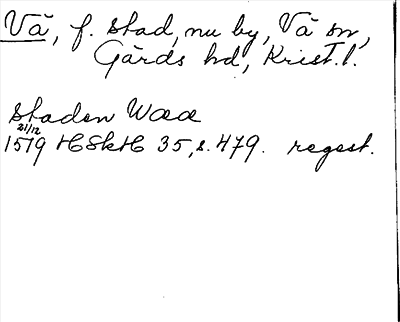 Vä, f. stad, nu by, Vä sn,
Gärds hd, Krist. l.
staden Waa
21/12
1519 HSkH 35, s. 479. regest.